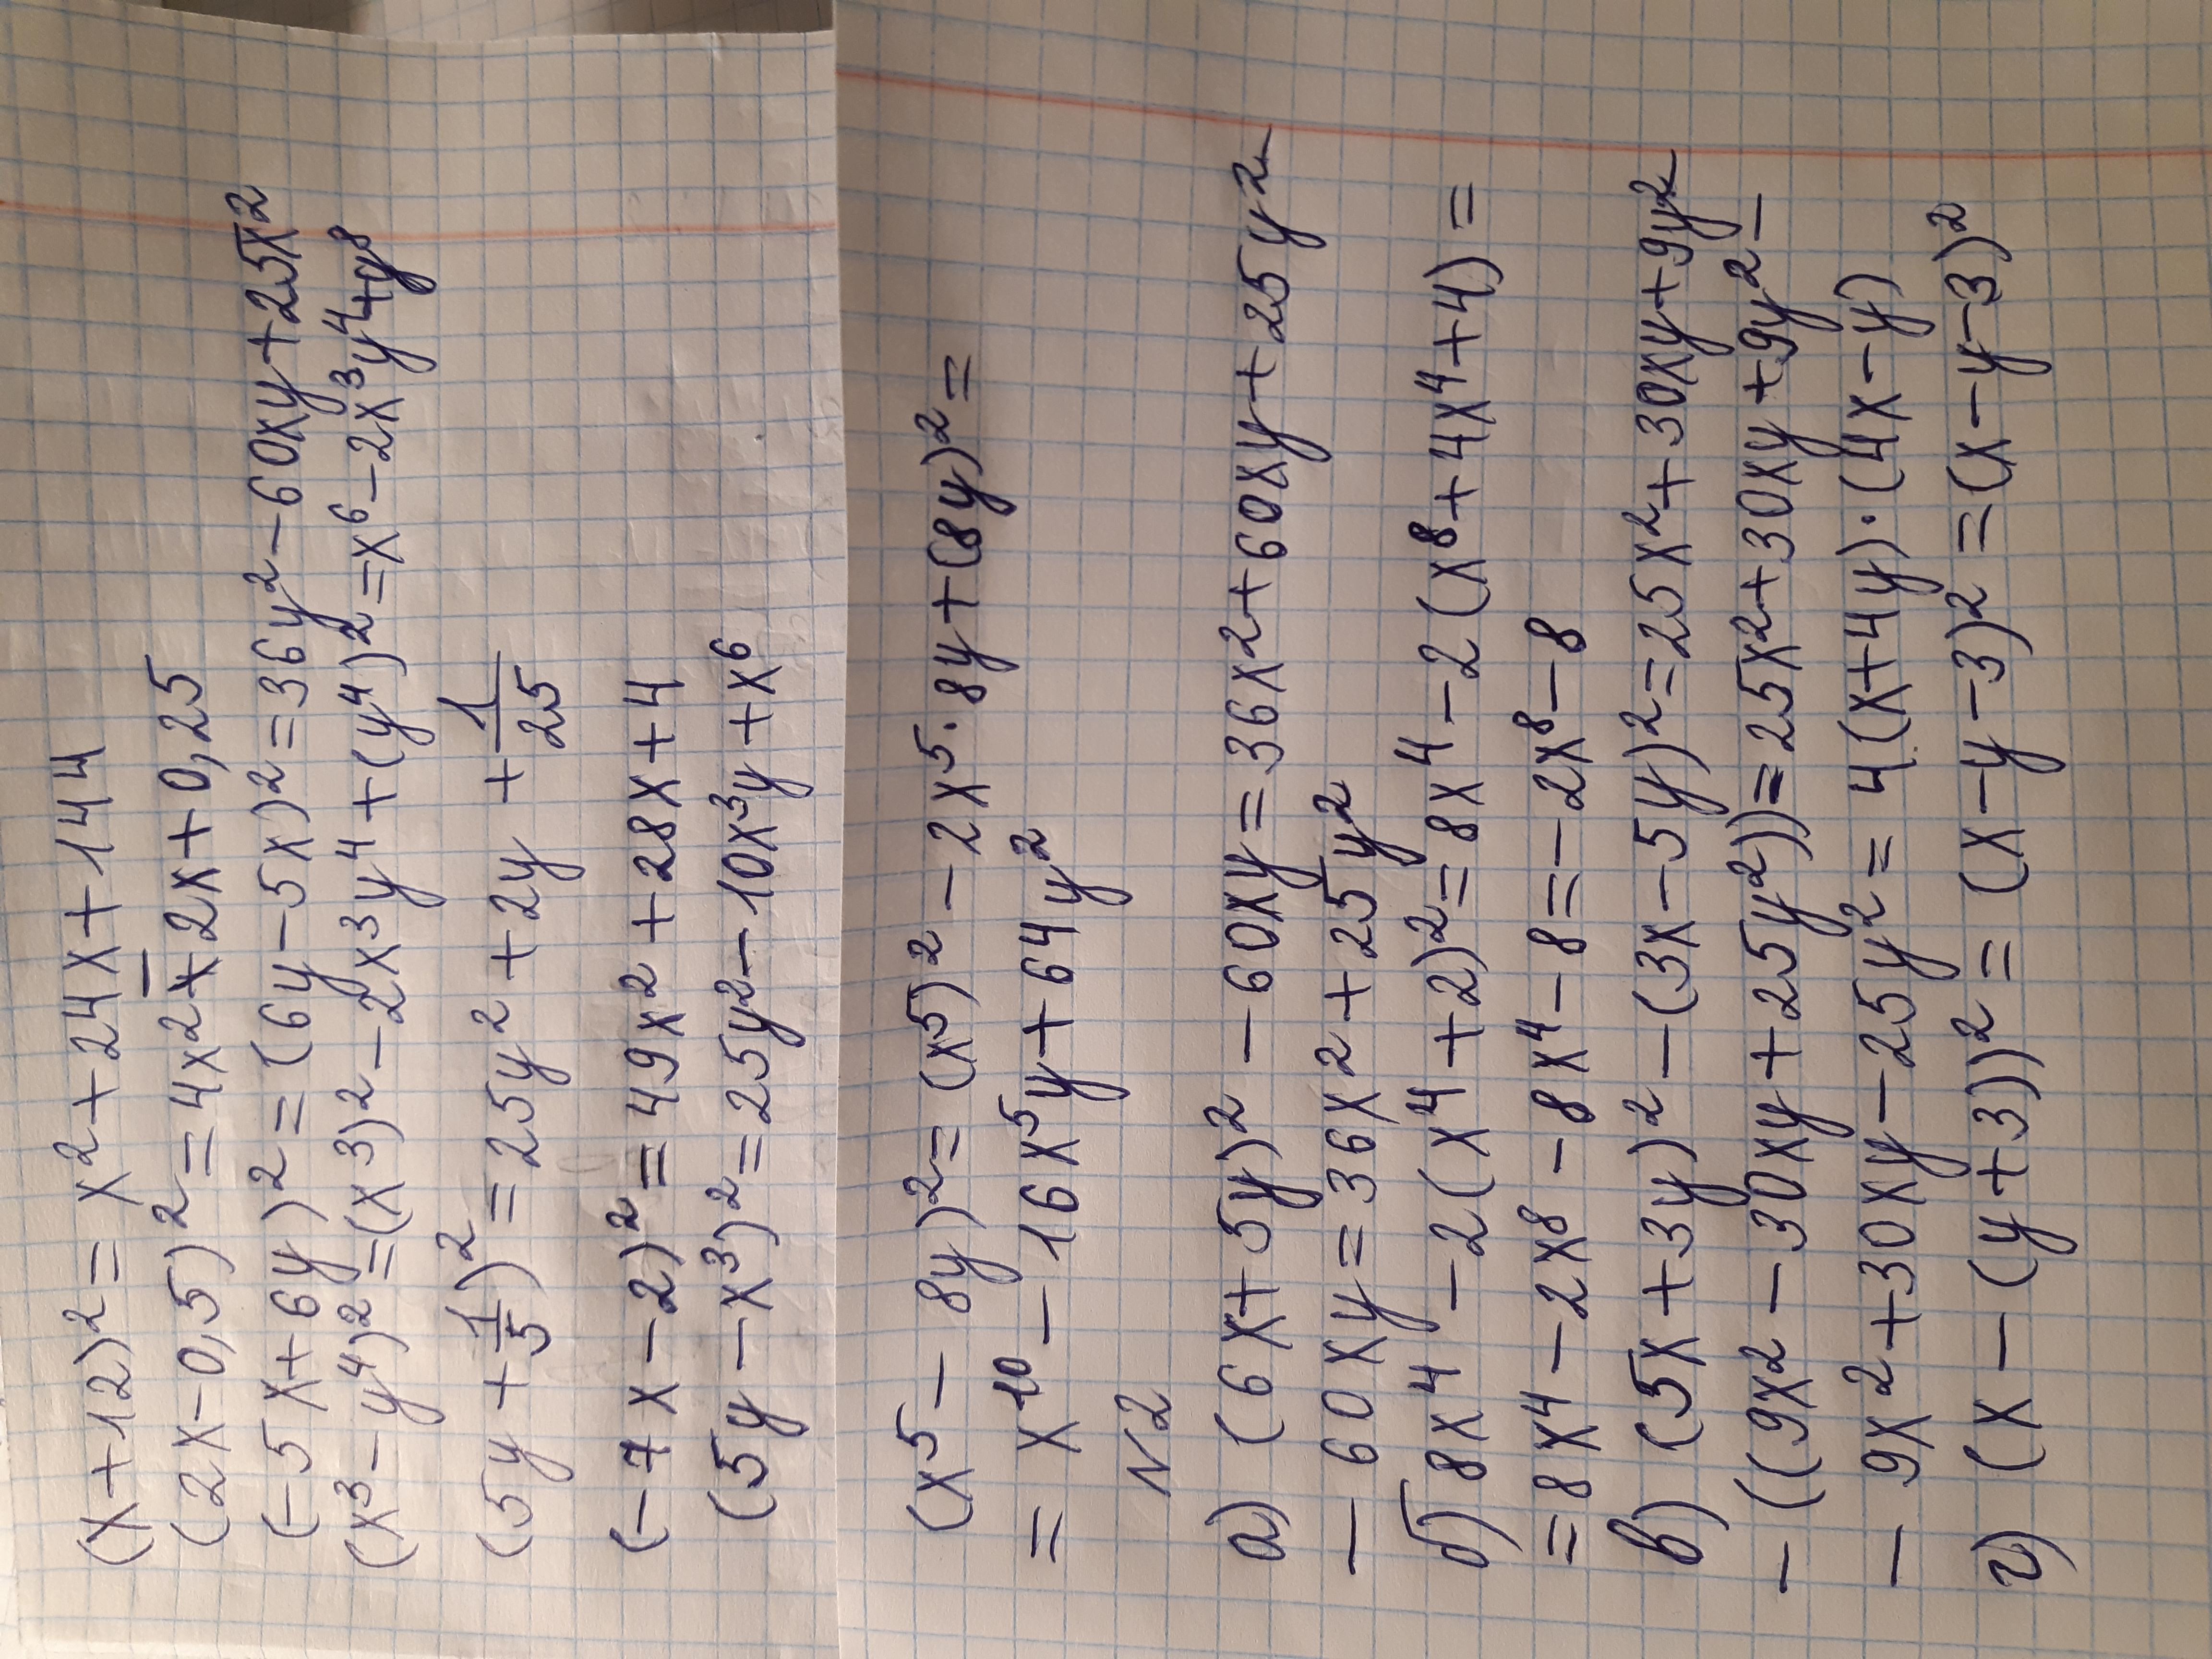 (x+12)² = x²+24x+144
(2x-0,5)² = 4x²-2x+0,25
(-5x+6y)² = (6y-5x)² = 36y²-60xy+25x²
(x³-y⁴)² = (x³)²-2x³y⁴+(y⁴)² = x⁶-2x³y⁴+y⁸
(5y+1/5)² = 25y²+2y+1/25
(-7x-2)² = 49x²+28x+4
(5y-x³)² = 25y²-10x³y+x⁶
(x⁵-8y)² = (x⁵)²-2x⁵·8y+(8y)² =
= x¹⁰-16x⁵y+64y²
N2
а) (6x+5y)²-60xy = 36x²+60xy+25y²-
-60xy = 36x²+25y²
б) 8x⁴-2(x⁴+2)² = 8x⁴-2(x⁸+4x⁴+4) =
= 8x⁴-2x⁸-8x⁴-8 = -2x⁸-8
в) (5x+3y)²-(3x-5y)² = 25x²+30xy+9y²-
-((9x²-30xy+25y²)) = 25x²+30xy+9y²-
-9x²+30xy-25y² = 4(x+4y)·(4x-y)
г) (x-(y+3))² = (x-y-3)² = (x-y-3)²